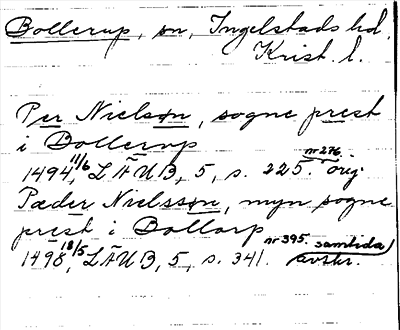 Bollerup, sn, Ingelstads hd,
Krist. l.
Per Nielsøn, sogne prest
i Bollerup
1494 11/6, LÄUB, 5, s. 225. nr 276. orig.
Pæder Nielssøn, myn sogne
prest i Bollorp
1498 18/5, LÄUB, 5, s. 341. nr 395. samtida
avskr.